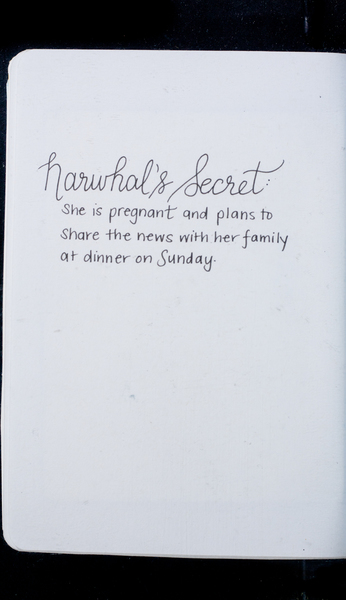 narwhal's Secret:
She is pregnant and plans to
Share the news with her family
at dinner on Sunday.